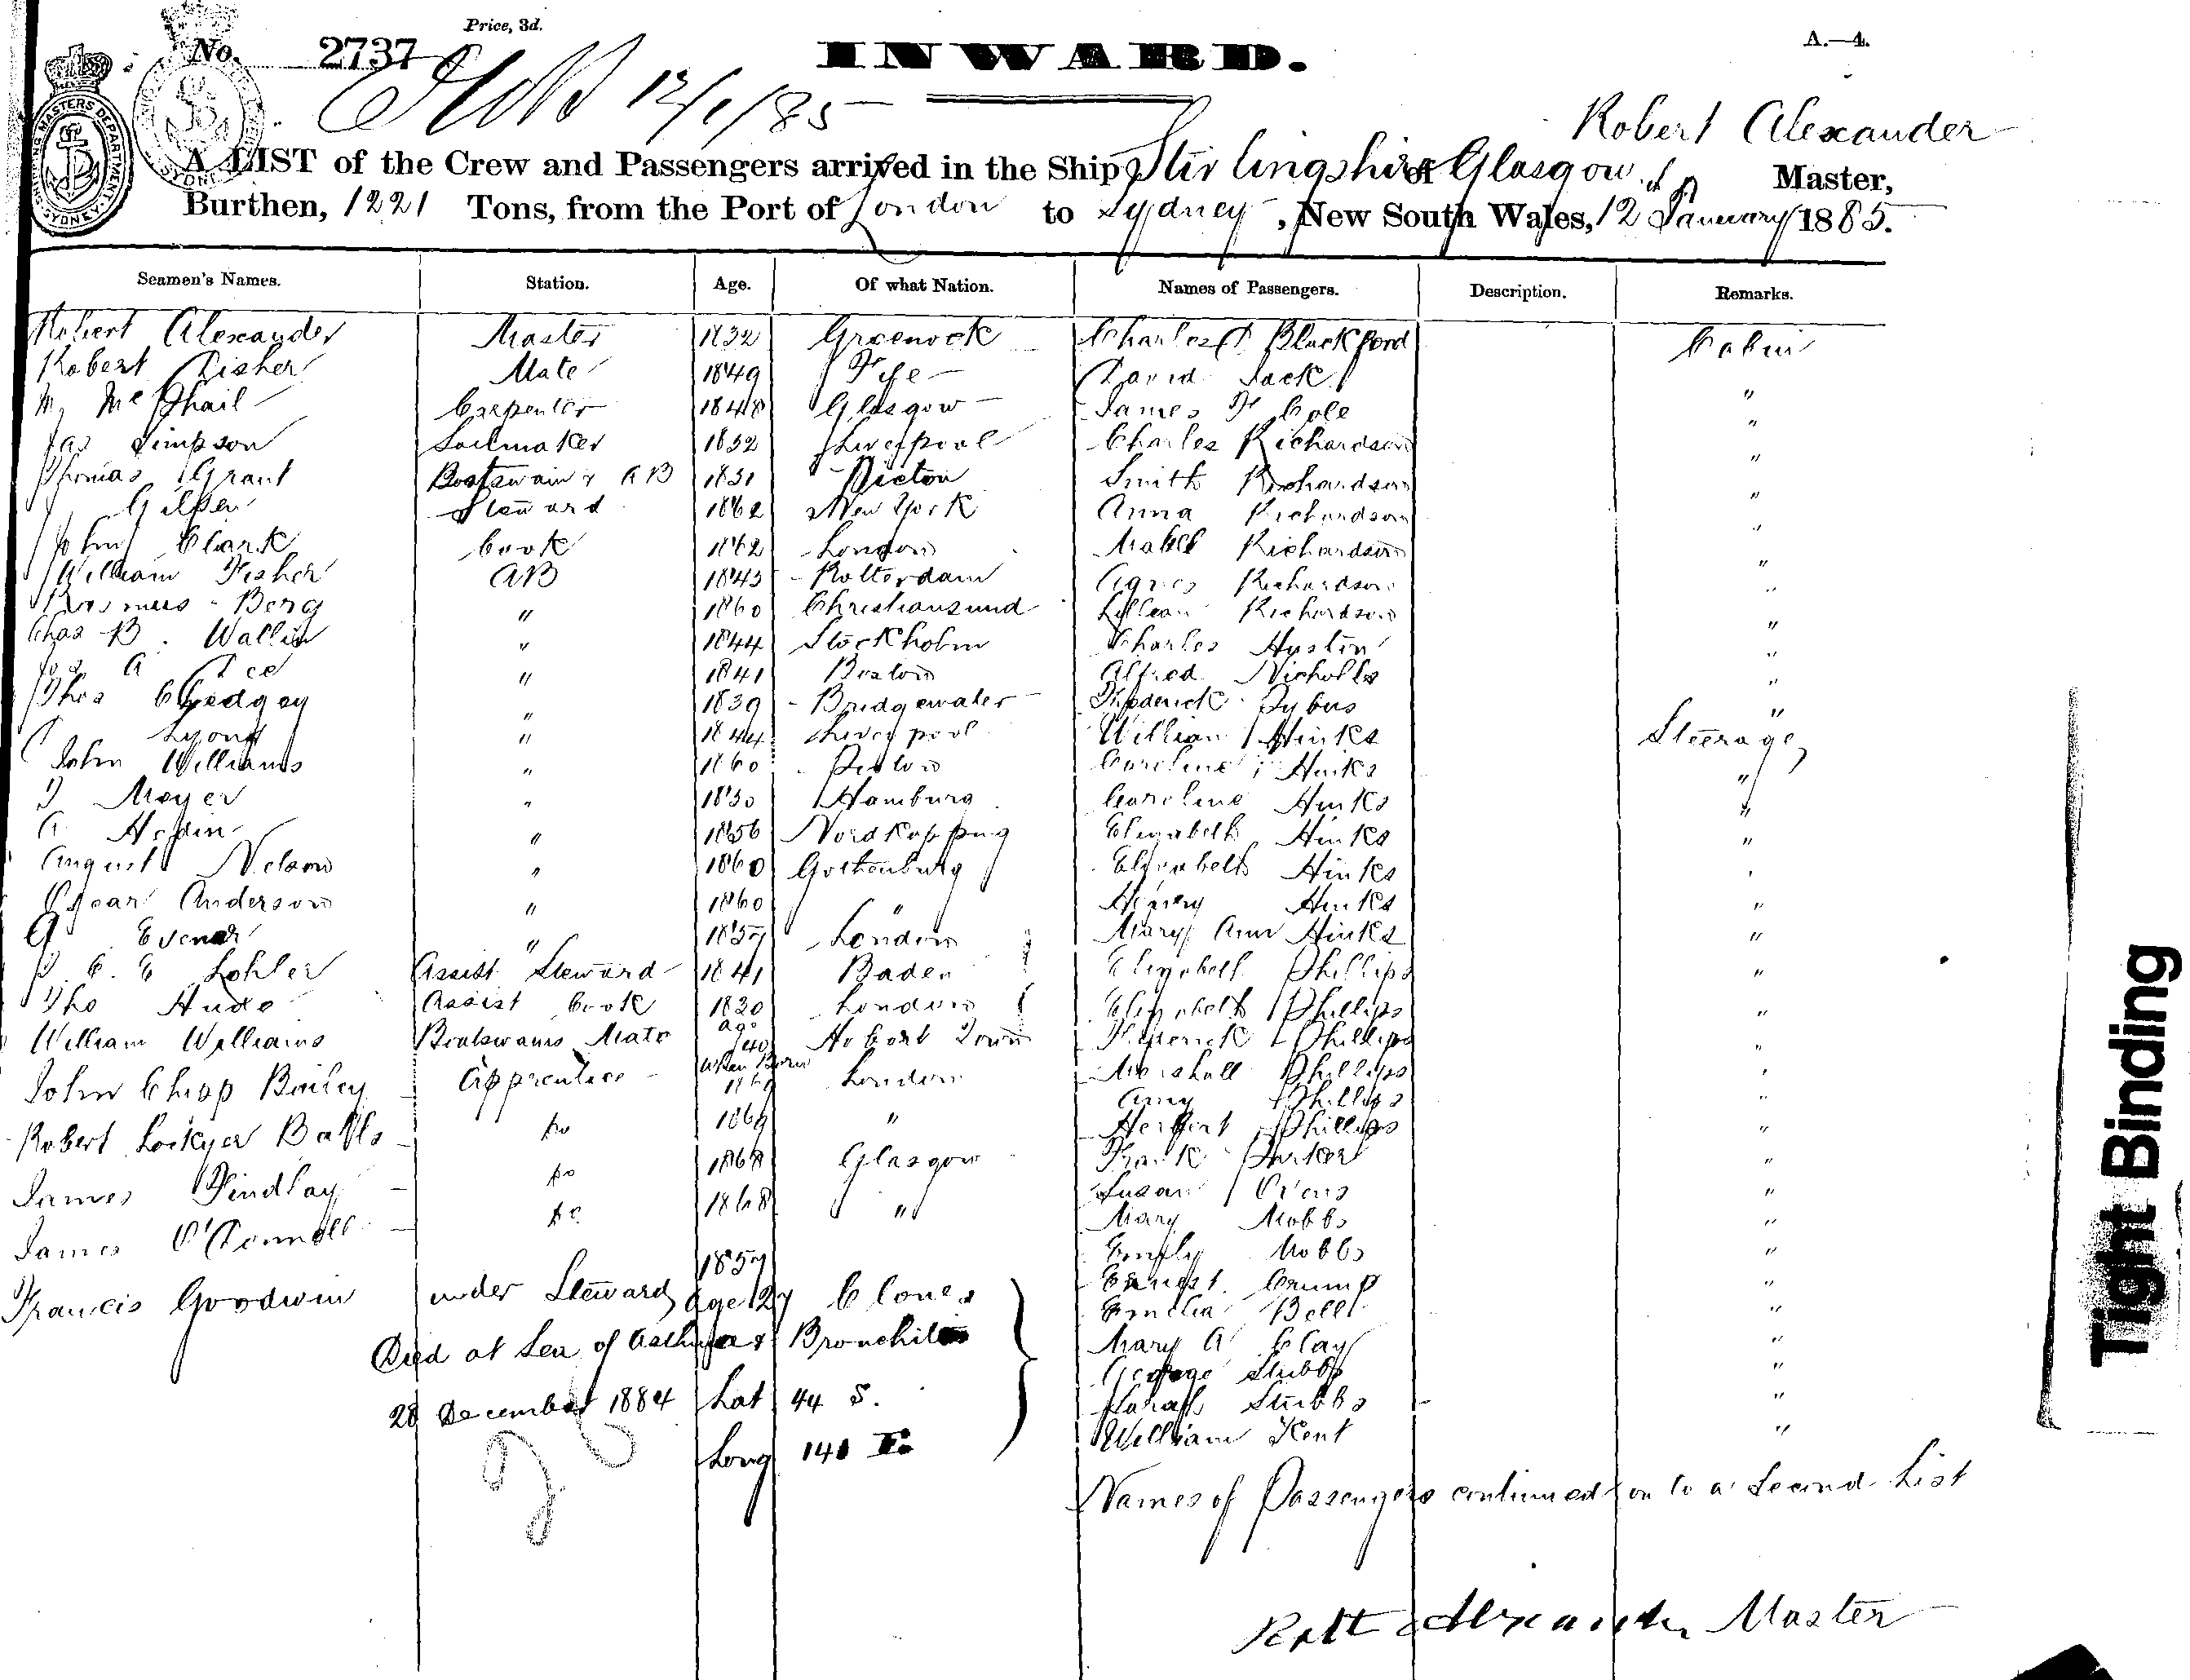 Price, 3d.
No. 2737
INWARD.
A.—4.
12/1/85
Robert Alexander
A LIST of the Crew and Passengers arrived in the Ship Stirlingshire of Glasgow Master,
Burthen, 1221 Tons, from the Port of London to Sydney, New South Wales, 12 January 1885.
Seamen's Names. Station. Age. Of what Nation. Names of Passengers. Description. Remarks.
Robert Alexander Master 1832 Greenock Charles Blackford Cabin
Robert Fisher Mate 1849 Fife David Jack "
M. McPhail Carpenter 1848 Glasgow James F Cole "
Jas Simpson Sailmaker 1832 Liverpool Charles Richardson "
Thomas Grant Boatswain & AB 1831 Pictou Smith Richardson "
Steward 1862 New York Anna Richardson "
John Clark Cook 1862 London Mabel Richardson "
William Fisher AB 1843 Rotterdam Agnes Richardson "
Rasmus Berg " 1860 Christiansund Lillian Richardson "
Chas B. Wallin " 1844 Stockholm Charles Austin "
" 1841 Boston Alfred Nicholls "
Thos " 1839 Bridgewater Frederick Pybus "
Lyons " 1844 Liverpool William Hinks Steerage
John Williams " 1860 Caroline Hinks "
Meyer " 1830 Hamburg Caroline Hinks "
A. " 1856 Nordkopping Elizabeth Hinks "
August Nelson " 1860 Gothenburg Elizabeth Hinks "
Oscar Anderson " 1860 " Henry Hinks "
" 1857 London Mary Ann Hinks "
Lohler Assist Steward 1841 Baden Elizabeth Phillips "
Tho Assist Cook 1830 London Elizabeth Phillips "
William Williams Boatswains Mate age 40 Hobart Town Frederick Phillips "
John Chisp Bailey Apprentice When Born London Marshall Phillips "
Amy Phillips "
Robert Lockyer Do 1869 " Herbert Phillips "
James Findlay Do 1868 Glasgow Frank Parker "
Susan "
James O'Connell Do 1868 " Mary Mobbs "
Emily Mobbs "
Francis Goodwin under Steward 1857 Age 27 Clones Ernest Crump "
Emelia Bell "
Died at Sea of Asthma & Bronchitis Mary A Clay "
George Stubbs "
28 December 1884 Lat 44 S. Sarah Stubbs "
Long 141 E. William Kent "
Names of Passengers continued on to a Second List
Robt Alexander Master
Tight Binding